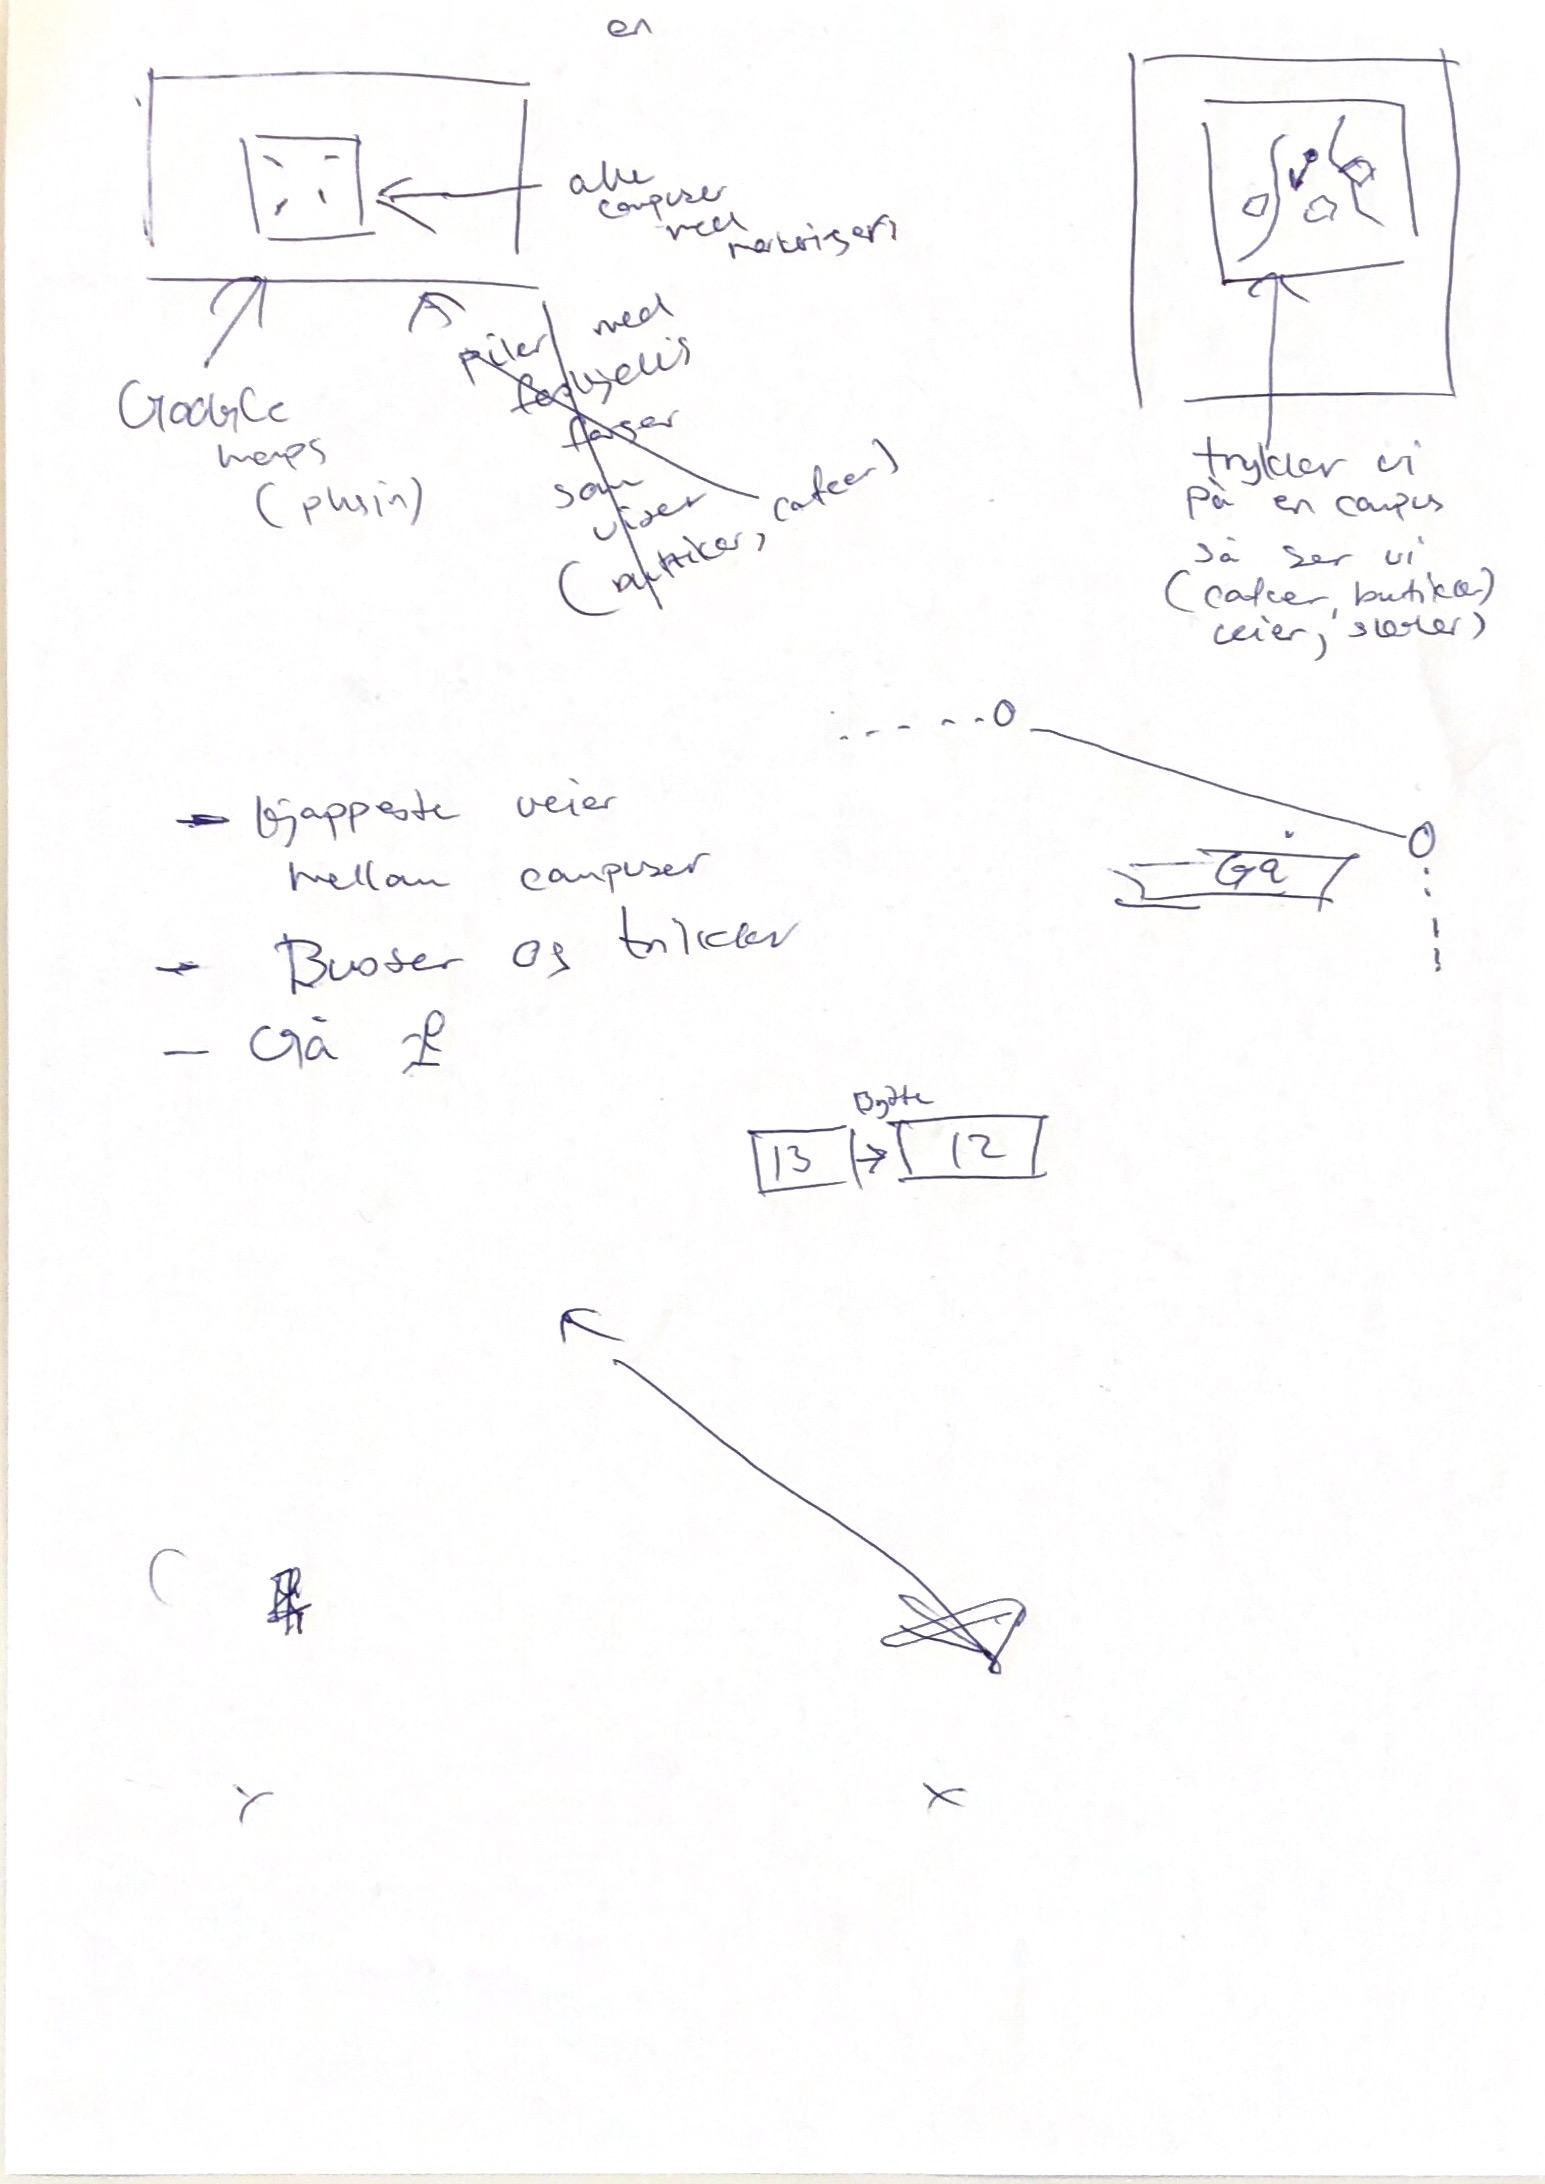 en
alle
campuser
med
markeriger
Google
maps
(plugin)
piler med
forskjellig
farger
som
viser
(butikker, cafeer)
trykker vi
på en campus
så ser vi
(cafeer, butiker)
veier,
kjappeste veier
mellom campuser
Busser og trikker
Gå
Gå
Bytte
13
12